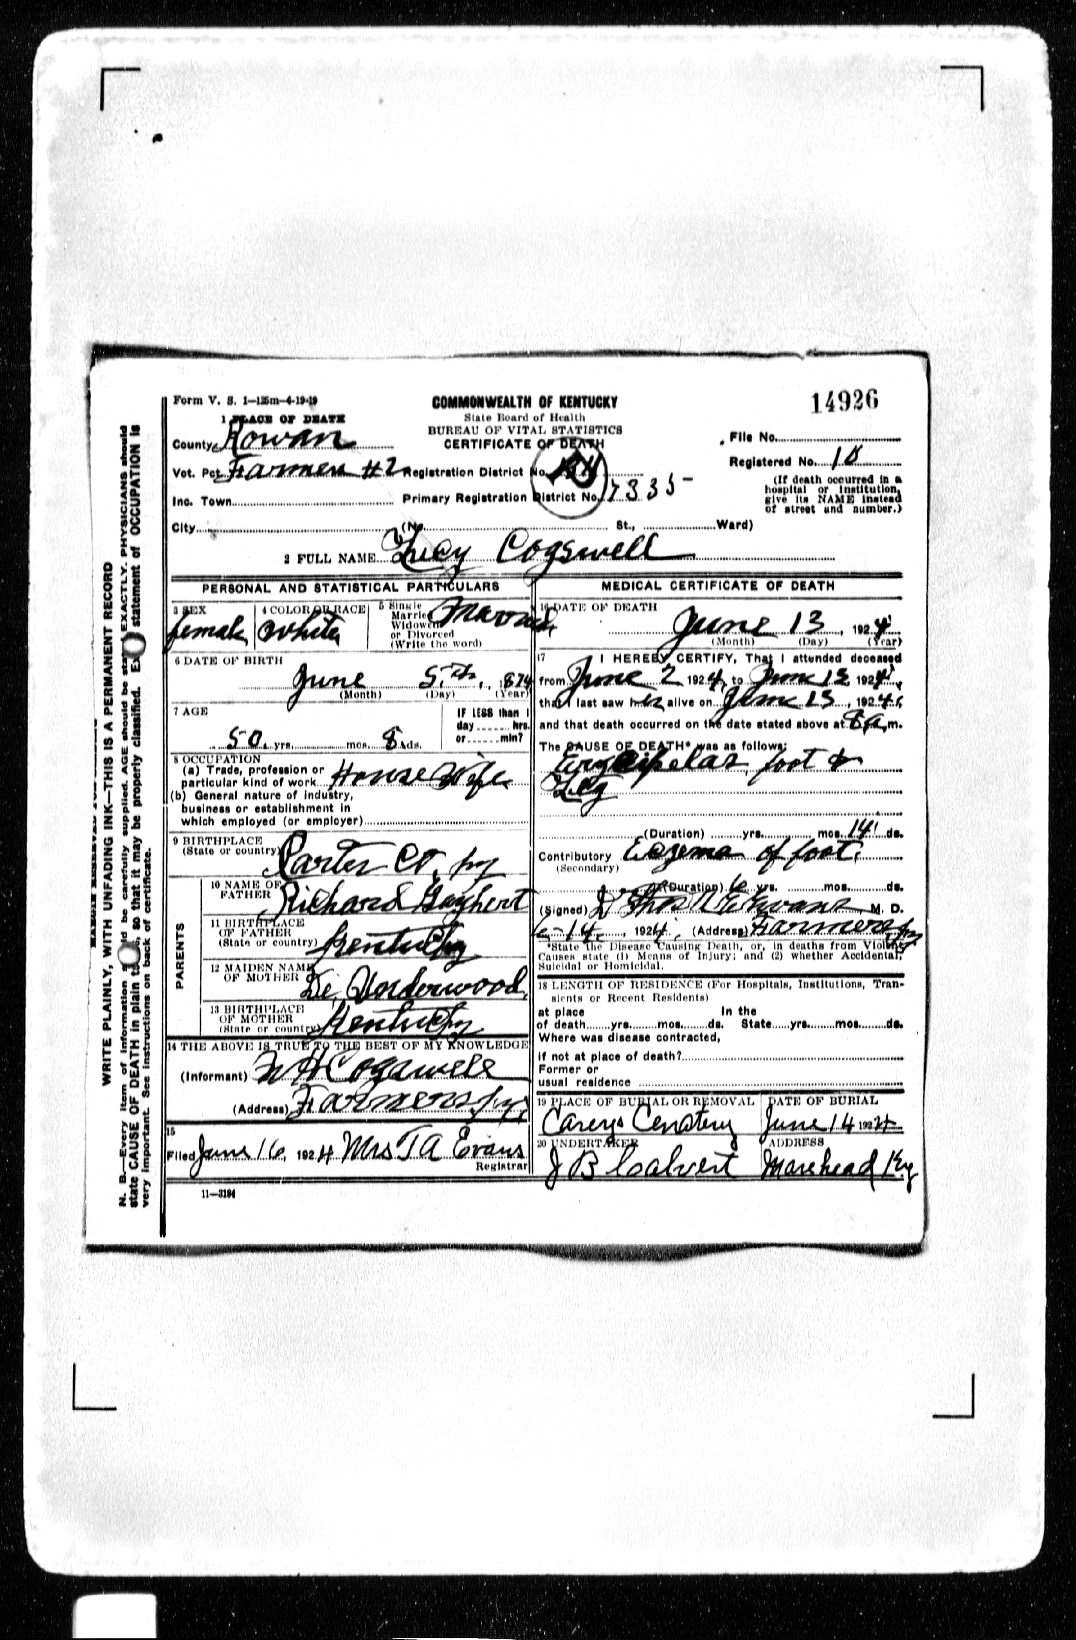 Form V. S. 1—125m—6-19-19
COMMONWEALTH OF KENTUCKY
State Board of Health
BUREAU OF VITAL STATISTICS
CERTIFICATE OF DEATH
14926
1 PLACE OF DEATH
County Rowan
Vot. Pct. Farmers #2
Inc. Town
City
Registration District No.
Primary Registration District No. 7335
(No. St., Ward)
File No.
Registered No. 18
(If death occurred in a
hospital or institution,
give its NAME instead
of street and number.)
2 FULL NAME Lucy Cogswell
PERSONAL AND STATISTICAL PARTICULARS
3 SEX
female
4 COLOR OR RACE
White
5 Single
Married
Widowed
or Divorced
(Write the word)
Married
6 DATE OF BIRTH
June 5th, 1874
(Month) (Day) (Year)
7 AGE
50 yrs. mos. 8 ds.
IF LESS than 1
day hrs.
or min?
8 OCCUPATION
(a) Trade, profession or
particular kind of work House Wife
(b) General nature of industry,
business or establishment in
which employed (or employer)
9 BIRTHPLACE
(State or country) Carter Co. Ky
PARENTS
10 NAME OF
FATHER Richard
11 BIRTHPLACE
OF FATHER
(State or country) Kentucky
12 MAIDEN NAME
OF MOTHER De Underwood
13 BIRTHPLACE
OF MOTHER
(State or country) Kentucky
14 THE ABOVE IS TRUE TO THE BEST OF MY KNOWLEDGE
(Informant) W H Cogswell
(Address) Farmers Ky
15
Filed June 16, 1924 Mrs T A Evans
Registrar
11—3184
MEDICAL CERTIFICATE OF DEATH
16 DATE OF DEATH
June 13, 1924
(Month) (Day) (Year)
17 I HEREBY CERTIFY, That I attended deceased
from June 2 1924, to June 13 1924,
that I last saw her alive on June 13, 1924,
and that death occurred on the date stated above at 8 a.m.
The CAUSE OF DEATH* was as follows:
Erysipelas foot &
Leg
(Duration) yrs. mos. 14 ds.
Contributory Eczema of foot
(Secondary)
(Duration) 6 yrs. mos. ds.
(Signed) Evans M. D.
6-14, 1924. (Address) Farmers Ky
*State the Disease Causing Death, or, in deaths from Violent
Causes state (1) Means of Injury; and (2) whether Accidental,
Suicidal or Homicidal.
18 LENGTH OF RESIDENCE (For Hospitals, Institutions, Tran-
sients or Recent Residents)
At place In the
of death yrs. mos. ds. State yrs. mos. ds.
Where was disease contracted,
if not at place of death?
Former or
usual residence
19 PLACE OF BURIAL OR REMOVAL
Careys Cemetery
DATE OF BURIAL
June 14 1924
20 UNDERTAKER
J B Calvert
ADDRESS
Morehead Ky
WRITE PLAINLY, WITH UNFADING INK—THIS IS A PERMANENT RECORD
N. B.—Every item of information should be carefully supplied. AGE should be stated EXACTLY. PHYSICIANS should
state CAUSE OF DEATH in plain terms, so that it may be properly classified. Exact statement of OCCUPATION is
very important. See instructions on back of certificate.